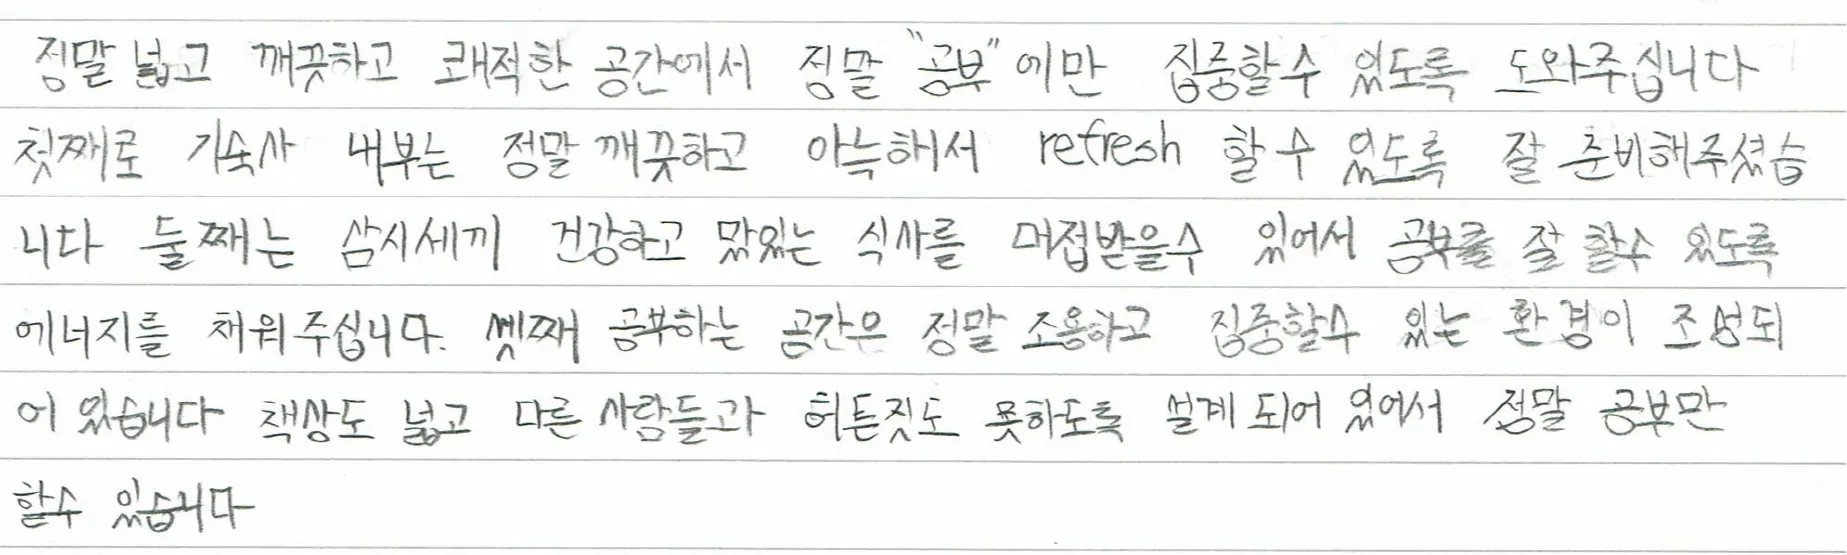 정말 넓고 깨끗하고 쾌적한 공간에서 정말 "공부"에만 집중할수 있도록 도와주십니다
첫째로 기숙사 내부는 정말 깨끗하고 아늑해서 refresh 할 수 있도록 잘 준비해주셨습
니다 둘째는 삼시세끼 건강하고 맜있는 식사를 머접받을수 있어서 공부를 잘 할수 있도록
에너지를 채워주십니다. 셋째 공부하는 공간은 정말 조용하고 집중할수 있는 환경이 조성되
어 있습니다 책상도 넓고 다른 사람들과 허튼짓도 못하도록 설계 되어 있어서 정말 공부만
할수 있습니다